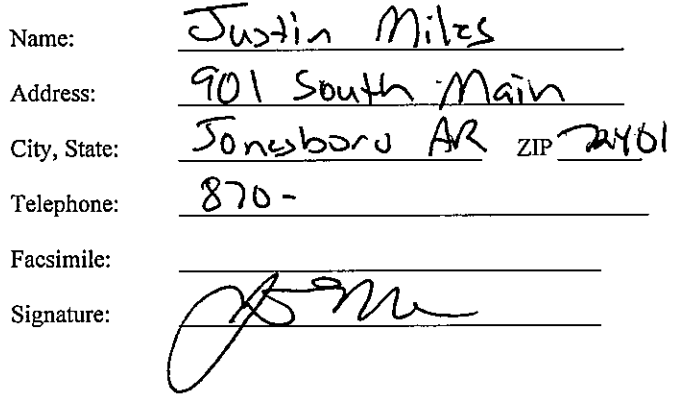 Name: Justin Miles
Address: 901 South Main
City, State: Jonesboro AR ZIP 72401
Telephone: 870-
Facsimile:
Signature: